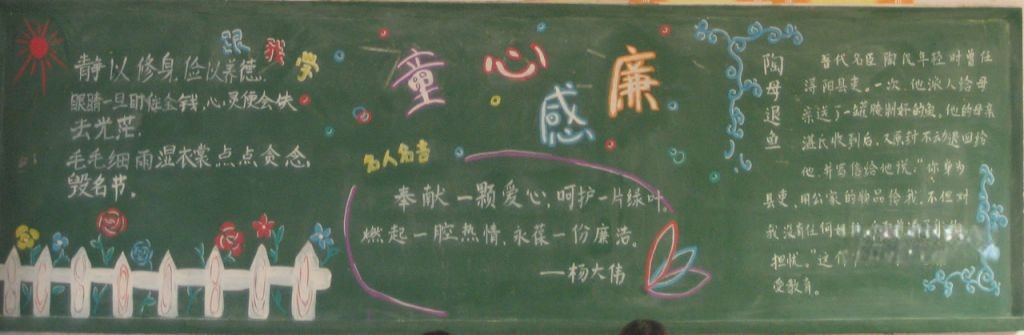 跟我学
静以修身,俭以养德。
眼睛一旦盯住金钱,心灵便会失
去光茫.
毛毛细雨湿衣裳,点点贪念,
毁名节.
童心感廉
名人名言
奉献一颗爱心,呵护一片绿叶.
燃起一腔热情,永葆一份廉洁。
—杨大伟
陶母退鱼
晋代名臣陶侃年轻时曾任
浔阳县吏。一次,他派人给母
亲送了一罐腌制好的鱼,他的母亲
湛氏收到后,又原封不动退回给
他,并写信给他说:"你身为
县吏,用公家的物品给我,不但对
我没有任何
担忧。"这个
受教育。